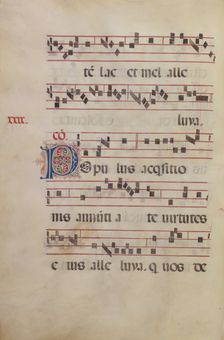 tē lac et mel alle
luya.
xxix.
cō.
Opu lus acq̄sitio
nis annūti a te uirtutes
e ius alle luya. q uos de